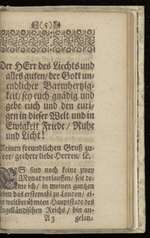 (5)
Der HErr des Liechts und
alles guten/ der Gott un-
endlicher Barmhertzig-
keit/ sey euch gnädig und
gebe euch und den euri-
gen in dieser Welt und in
Ewigkeit Friede/ Ruhe
und Licht!
Meinen freundlichen Gruß zu-
vor/ geehrte liebe Herren/ ꝛc.
ES sind noch keine zwey
Monat verlauffen/ seit de-
me ich/ in meinem gantzen
Leben das erstemahl zu Londen/ als
weltberühmten Hauptstadt des
Engelländischen Reichs/ bin an-
A3 gelan-